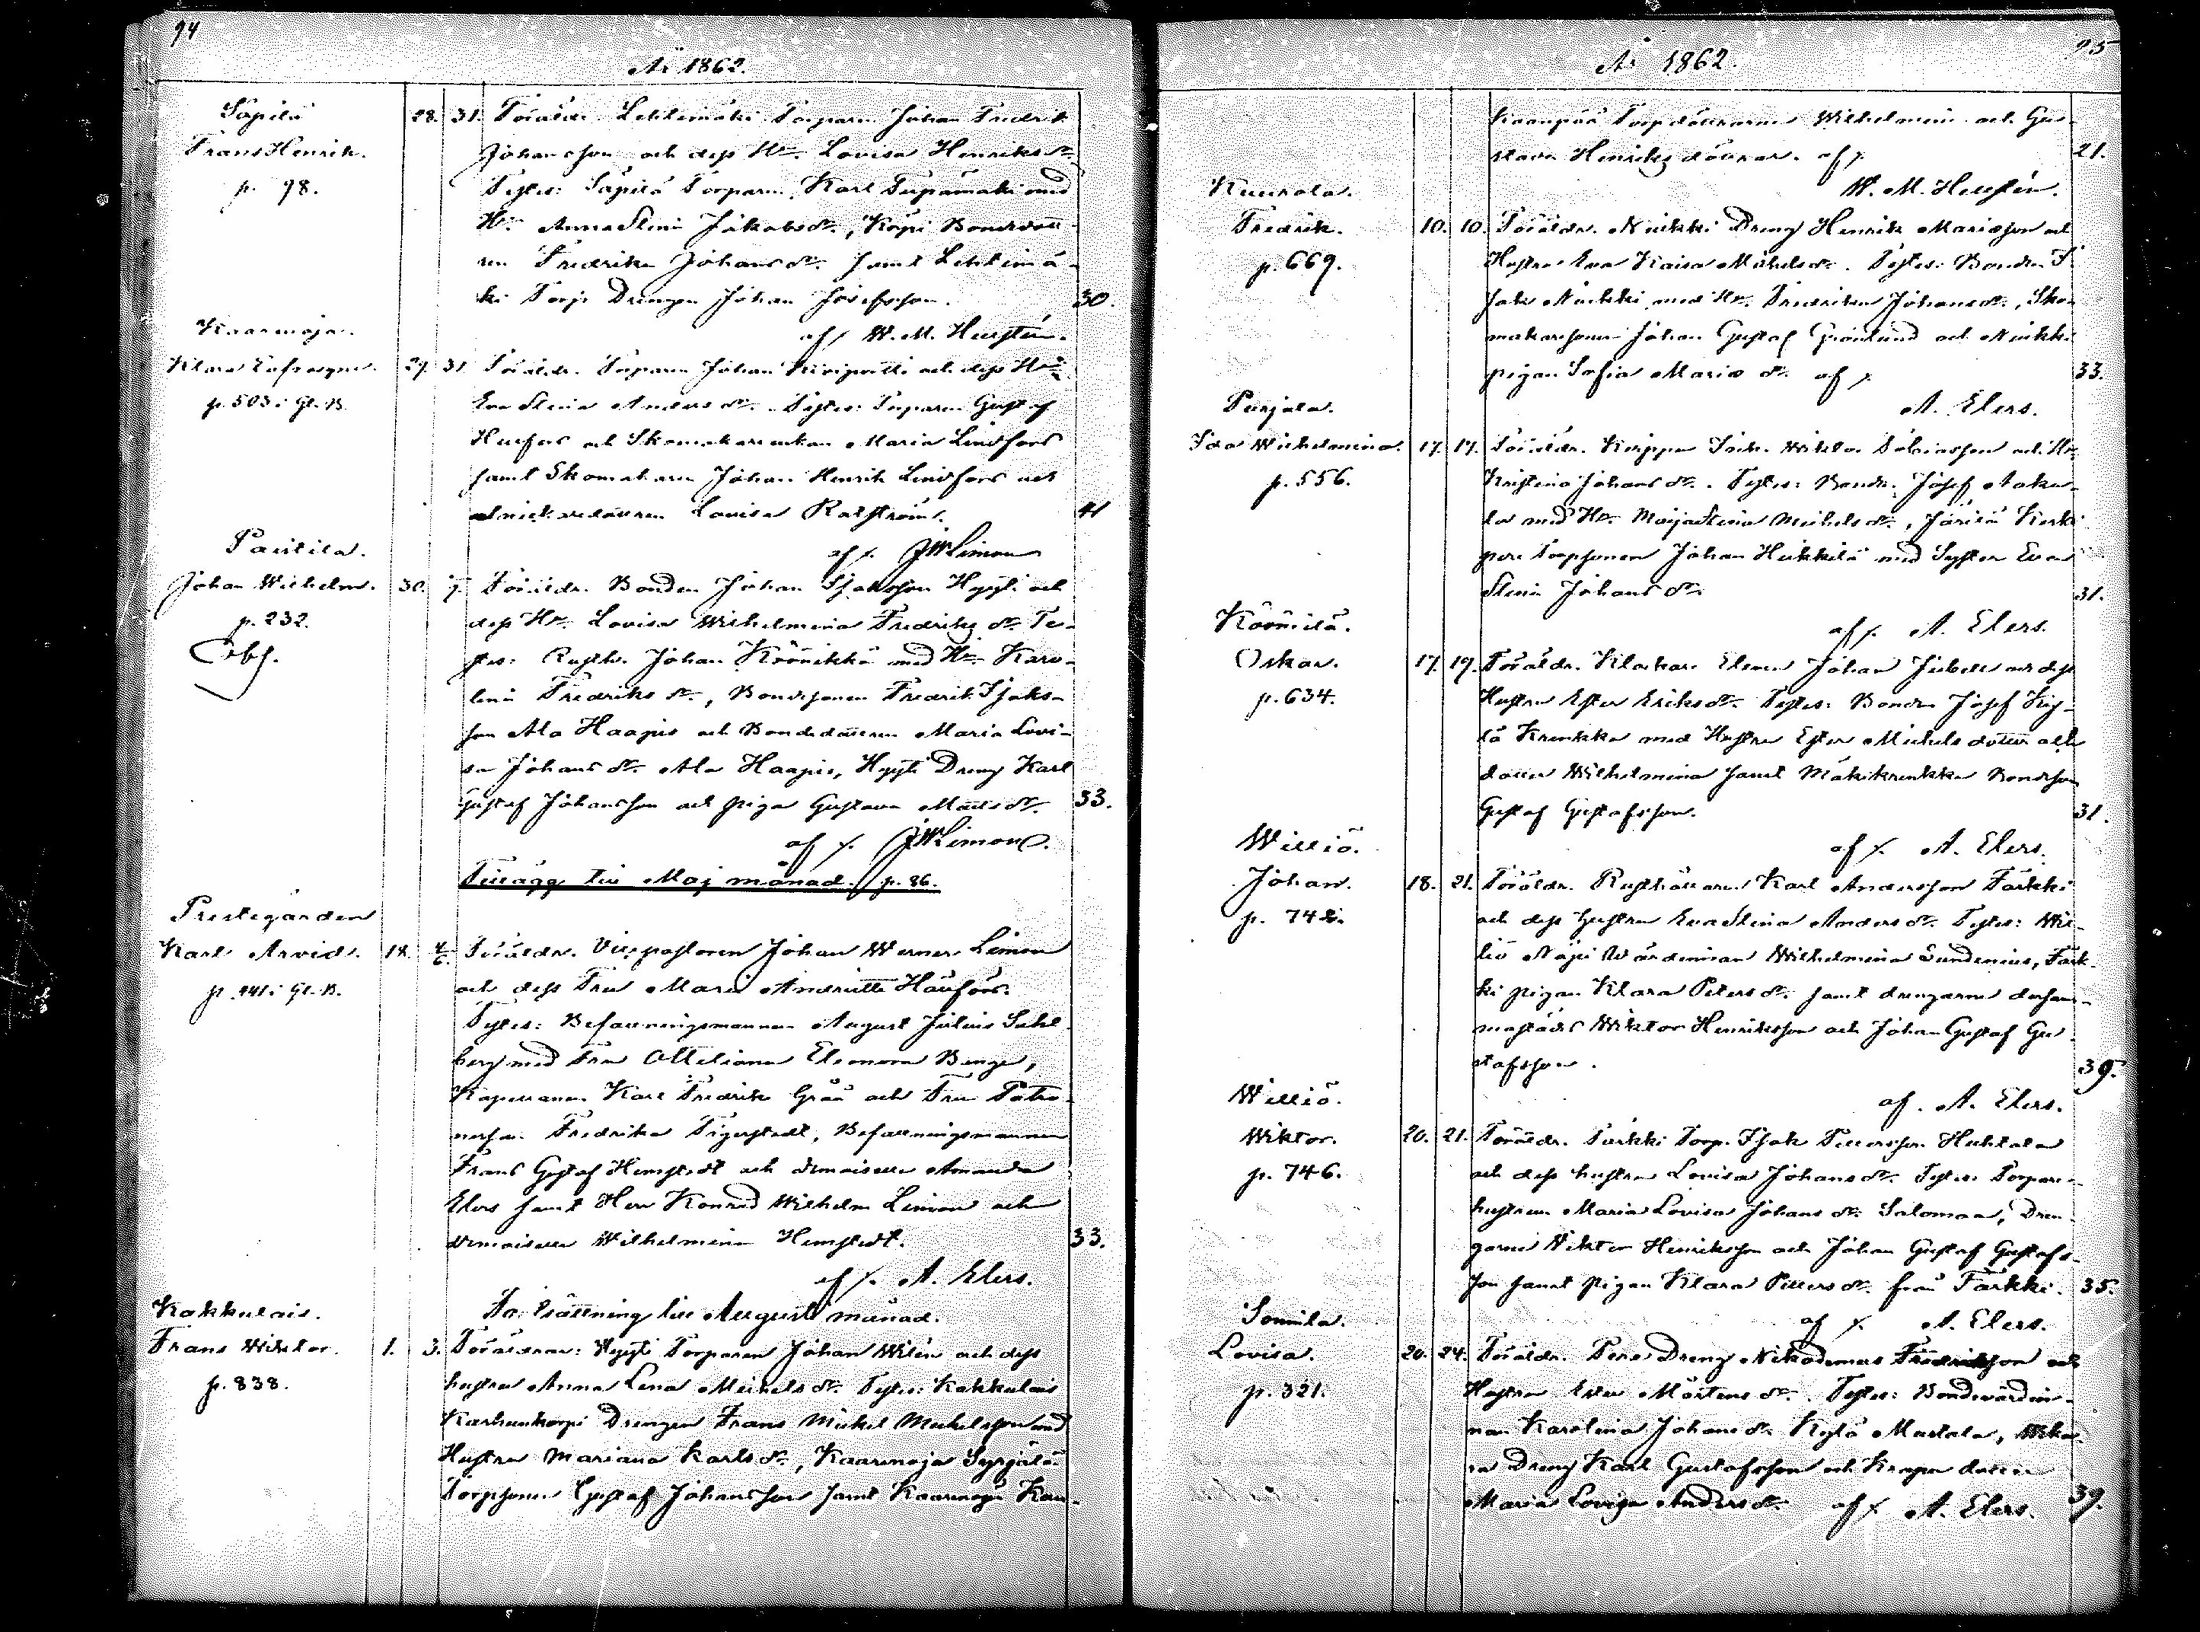 94
År 1862.
Säpilä
Frans Henrik.
p. 98.
28. 31. Föräldr. Lehtimäki Torparn Johan Fredrik
Johansson och dess Hu. Lovisa Henriksdr.
Testes: Säpilä Torparn Karl Tupamäki med
Hu. Anna Stina Jakobsdr., Köpi Bondedott-
ren Fredrika Johansdr. samt Lehtimä-
ki Torp. Drengen Johan Josefsson. 30.
af W. M. Hersten.
Kaarnoja.
Klara Eufrosyne. 29. 31
p. 503 i Gl. B.
Föräldr. Torparen Johan och dess Hu.
Eva Stina Andersdr. Testes: Torparn Gustaf
och Skomakareenkan Maria Lindfors
samt Skomakaren Johan Henrik Lindfors och
Snickaredottren Lovisa 41
af J W Limon
Pautila.
Johan Wilhelm. 30. 7.
p. 232.
Föräldr. Bonden Johan Isaksson Hyyti och
dess Hu. Lovisa Wilhelmina Fredriksdr. Te-
stes: Rusth. Johan Köönikkä med Hu. Karo-
lina Fredriksdr., Bondesonen Fredrik Isaks-
son Ala Haapio och Bondedottren Maria Lovi-
sa Johansdr. Ala Haapio, Hyyti Dreng Karl
Gustaf Johansson och piga Gustava Matsdr. 33.
af J W Limon.
Tillägg till Maj månad. p. 86.
Prestegården
Karl Arvid. 18.
p. 441 i Gl. B.
Föräldr. Vicepastoren Johan Werner Limon
och dess Fru Maria
Testes: Befallningsmannen August Julius Sahl-
berg med Fru Ottiliana Eleonora
Kapellanen Karl Fredrik Gråå och Fru
Fredrika Tigerstedt, Befallningsmannen
Frans Gustaf Hemstedt och demoiselle Amanda
Elers samt Herr Konrad Wilhelm Limon och
demoiselle Wilhelmina Hemstedt. 33.
af A. Elers.
Fortsättning till Augusti månad.
Kakkulais.
Frans Wiktor. 1. 3.
p. 838.
Föräldrar: Hyyti Torparen Johan Wilén och dess
hustru Anna Lena Mickelsdr. Testes: Kakkulais
Karhunkorpi Drengen Frans Mickel Mickelsson med
Hustru Mariana Karlsdr., Kaarnoja Syrjälä
Torpsonen Gustaf Johansson samt Kaarnoja Kan-
95
År 1862.
kaanpää Torpdöttrarne Wilhelmina och Gu-
stava Henriksdöttrar. af 21.
W. M. Hersten.
Kuurola.
Fredrik. 10. 10.
p. 669.
Föräldr. Nuikki Dreng Henrik Mariasson och
Hustru Eva Kaisa Mickelsdr. Testes: Bonden I-
sak Nuikki med Hu. Fredrika Johansdr., Sko-
makaresonen Johan Gustaf Grönlund och Nuikki
pigan Sofia Mariasdr. af 33.
A. Elers.
Purjala.
Ida Wilhelmina. 17. 17.
p. 556.
Föräldr. Wiktor och Hu.
Kristina Johansdr. Testes: Bondn. Josef
med Hu. Maija Stina Mickelsdr., Järilä
Torpsonen Johan Heikkilä med Syster Eva
Stina Johansdr. 31.
af A. Elers.
Köönilä.
Oskar. 17. 19.
p. 634.
Föräldr. Klockare Eleven Johan och dess
Hustru Ester Eriksdr. Testes: Bonden Josef
Krenkka med Hustru Ester Mickelsdotter och
dotter Wilhelmina samt Mäkikrenkka Bondeson
Gustaf Gustafsson. 31.
af A. Elers.
Williö.
Johan. 18. 21.
Föräldr. Rusthållaren Karl Andersson Tärkki
och dess hustru Eva Stina Andersdr. Testes: Wil-
liö Wärdinnan Wilhelmina Sundenius, Tärk-
ki pigan Klara Petersdr. samt drengarne dersam-
mastädes Wiktor Henriksson och Johan Gustaf Gu-
stafsson. 39.
af. A. Elers.
Williö.
Wiktor. 20. 21.
p. 746.
Föräldr. Tärkki Torp. Isak Huhtala
och dess hustru Lovisa Johansdr. Testes: Torpare-
hustrun Maria Lovisa Johansdr. Salomaa, Dren-
garne Wiktor Henriksson och Johan Gustaf Gustafs-
son samt pigan Klara Pettersdr. från Tärkki. 35.
af A. Elers.
Sonnila.
Lovisa. 20. 24.
p. 321.
Föräldr. Pere Dreng Nikodemus Fredriksson och
Hustru Ester Mårtensdr. Testes: Bondevärdin-
nan Karolina Johansdr. Kylä
Dreng Karl Gustafsson och dotter
Maria Lovisa Andersdr. 39.
af A. Elers.